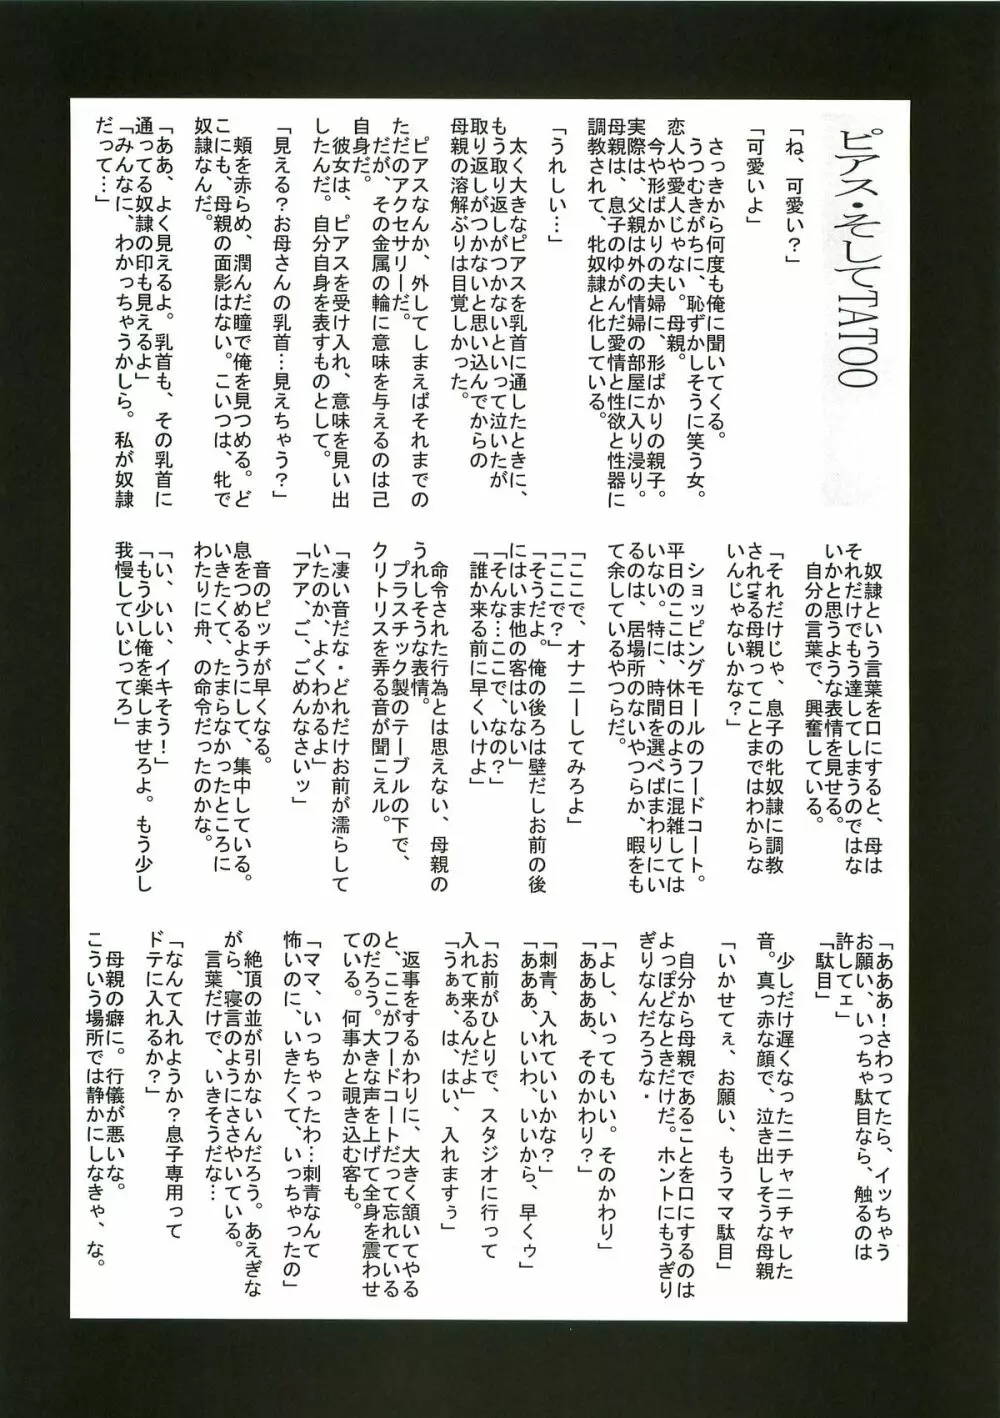 ピアス・そしてTATOO
「ね、可愛い？」
「可愛いよ」
さっきから何度も俺に聞いてくる。
うつむきがちに、恥ずかしそうに笑う女。
恋人や愛人じゃない。母親。
今や形ばかりの夫婦に、形ばかりの親子。
実際は、父親は外の情婦の部屋に入り浸り。
母親は、息子のゆがんだ愛情と性欲と性器に
調教されて、牝奴隷と化している。
「うれしい…」
太く大きなピアスを乳首に通したときに、
もう取り返しがつかないといって泣いたが
取り返しがつかないと思い込んでからの
母親の溶解ぶりは目覚しかった。
ピアスなんか、外してしまえばそれまでの
ただのアクセサリーだ。
だが、その金属の輪に意味を与えるのは己
自身だ。
彼女は、ピアスを受け入れ、意味を見い出
したんだ。自分自身を表すものとして。
「見える？お母さんの乳首…見えちゃう？」
頬を赤らめ、潤んだ瞳で俺を見つめる。ど
こにも、母親の面影はない。こいつは、牝で
奴隷なんだ。
「ああ、よく見えるよ。乳首も、その乳首に
通ってる奴隷の印も見えるよ」
「みんなに、わかっちゃうかしら。私が奴隷
だって…」
奴隷という言葉を口にすると、母は
それだけでもう達してしまうのではな
いかと思うような表情を見せる。
自分の言葉で、興奮している。
「それだけじゃ、息子の牝奴隷に調教
されtwる母親ってことまではわからな
いんじゃないかな？」
ショッピングモールのフードコート。
平日のここは、休日のように混雑しては
いない。特に、時間を選べばまわりにい
るのは、居場所のないやつらか、暇をも
て余しているやつらだ。
「ここで、オナニーしてみろよ」
「ここで？」
「そうだよ。俺の後ろは壁だしお前の後
にはいま他の客はいない」
「そんな…ここで、なの？」
「誰か来る前に早くいけよ」
命令された行為とは思えない、母親の
うれしそうな表情。
プラスチック製のテーブルの下で、
クリトリスを弄る音が聞こえル。
「凄い音だな・どれだけお前が濡らして
いたのか、よくわかるよ」
「アア、ご、ごめんなさいッ」
音のピッチが早くなる。
息をつめるようにして、集中している。
いきたくて、たまらなかったところに
わたりに舟、の命令だったのかな。
「い、いい、イキそう！」
「もう少し俺を楽しませろよ。もう少し
我慢していじってろ」
「あああ！さわってたら、イッちゃう
お願い、いっちゃ駄目なら、触るのは
許してェ」
「駄目」
少しだけ遅くなったニチャニチャした
音。真っ赤な顔で、泣き出しそうな母親
「いかせてぇ、お願い、もうママ駄目」
自分から母親であることを口にするのは
よっぽどなときだけだ。ホントにもうぎり
ぎりなんだろうな・
「よし、いってもいい。そのかわり」
「ああああ、そのかわり？」
「刺青、入れていいかな？」
「あああ、いいわ、いいから、早くゥ」
「お前がひとりで、スタジオに行って
入れて来るんだよ」
「うぁぁ、は、はい、入れますぅ」
返事をするかわりに、大きく頷いてやる
と、ここがフードコートだって忘れている
のだろう。大きな声を上げて全身を震わせ
ている。何事かと覗き込む客も。
「ママ、いっちゃったわ…刺青なんて
怖いのに、いきたくて、いっちゃったの」
絶頂の並が引かないんだろう。あえぎな
がら、寝言のようにささやいている。
言葉だけで、いきそうだな…
「なんて入れようか？息子専用って
ドテに入れるか？」
母親の癖に。行儀が悪いな。
こういう場所では静かにしなきゃ、な。